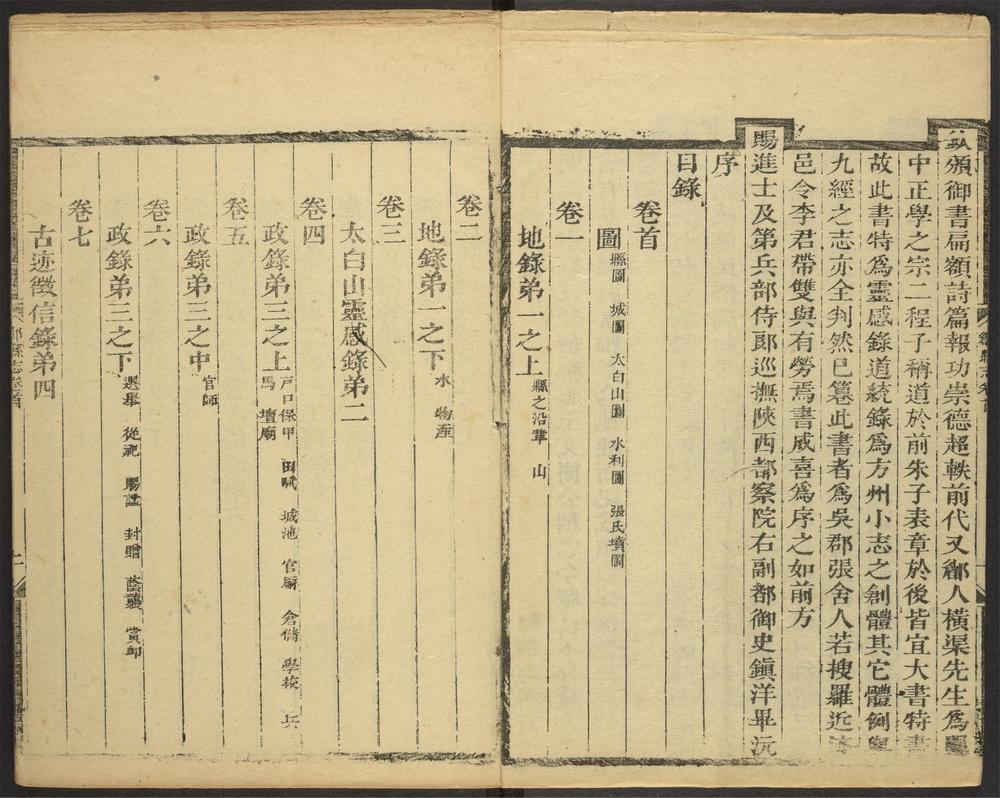 欽頒御書扁額詩篇報功崇德超軼前代又鄜人橫渠先生爲
中正學之宗二程子稱道於前朱子表章於後皆宜大書特書
故此書特爲靈感錄道統錄爲方州小志之創體其它體例與
九經之志亦全判然已篹此書者爲吳郡張舍人若搜羅近
邑令李君帶雙與有勞焉書成喜爲序之如前方
賜進士及第兵部侍郎巡撫陝西都察院右副都御史鎭洋畢沅
序
目錄
卷首
圖 縣圖 城圖 太白山圖 水利圖 張氏墳圖
卷一
地錄弟一之上 縣之沿革 山
卷二
地錄弟一之下 水 物產
卷三
太白山靈感錄弟二
卷四
政錄弟三之上 戸口保甲 田賦 城池 官廨 倉儲 學校 兵馬 壇廟
卷五
政錄弟三之中 官師
卷六
政錄弟三之下 選舉 從祀 賜諡 封贈 蔭襲 賞卹
卷七
古迹徵信錄弟四